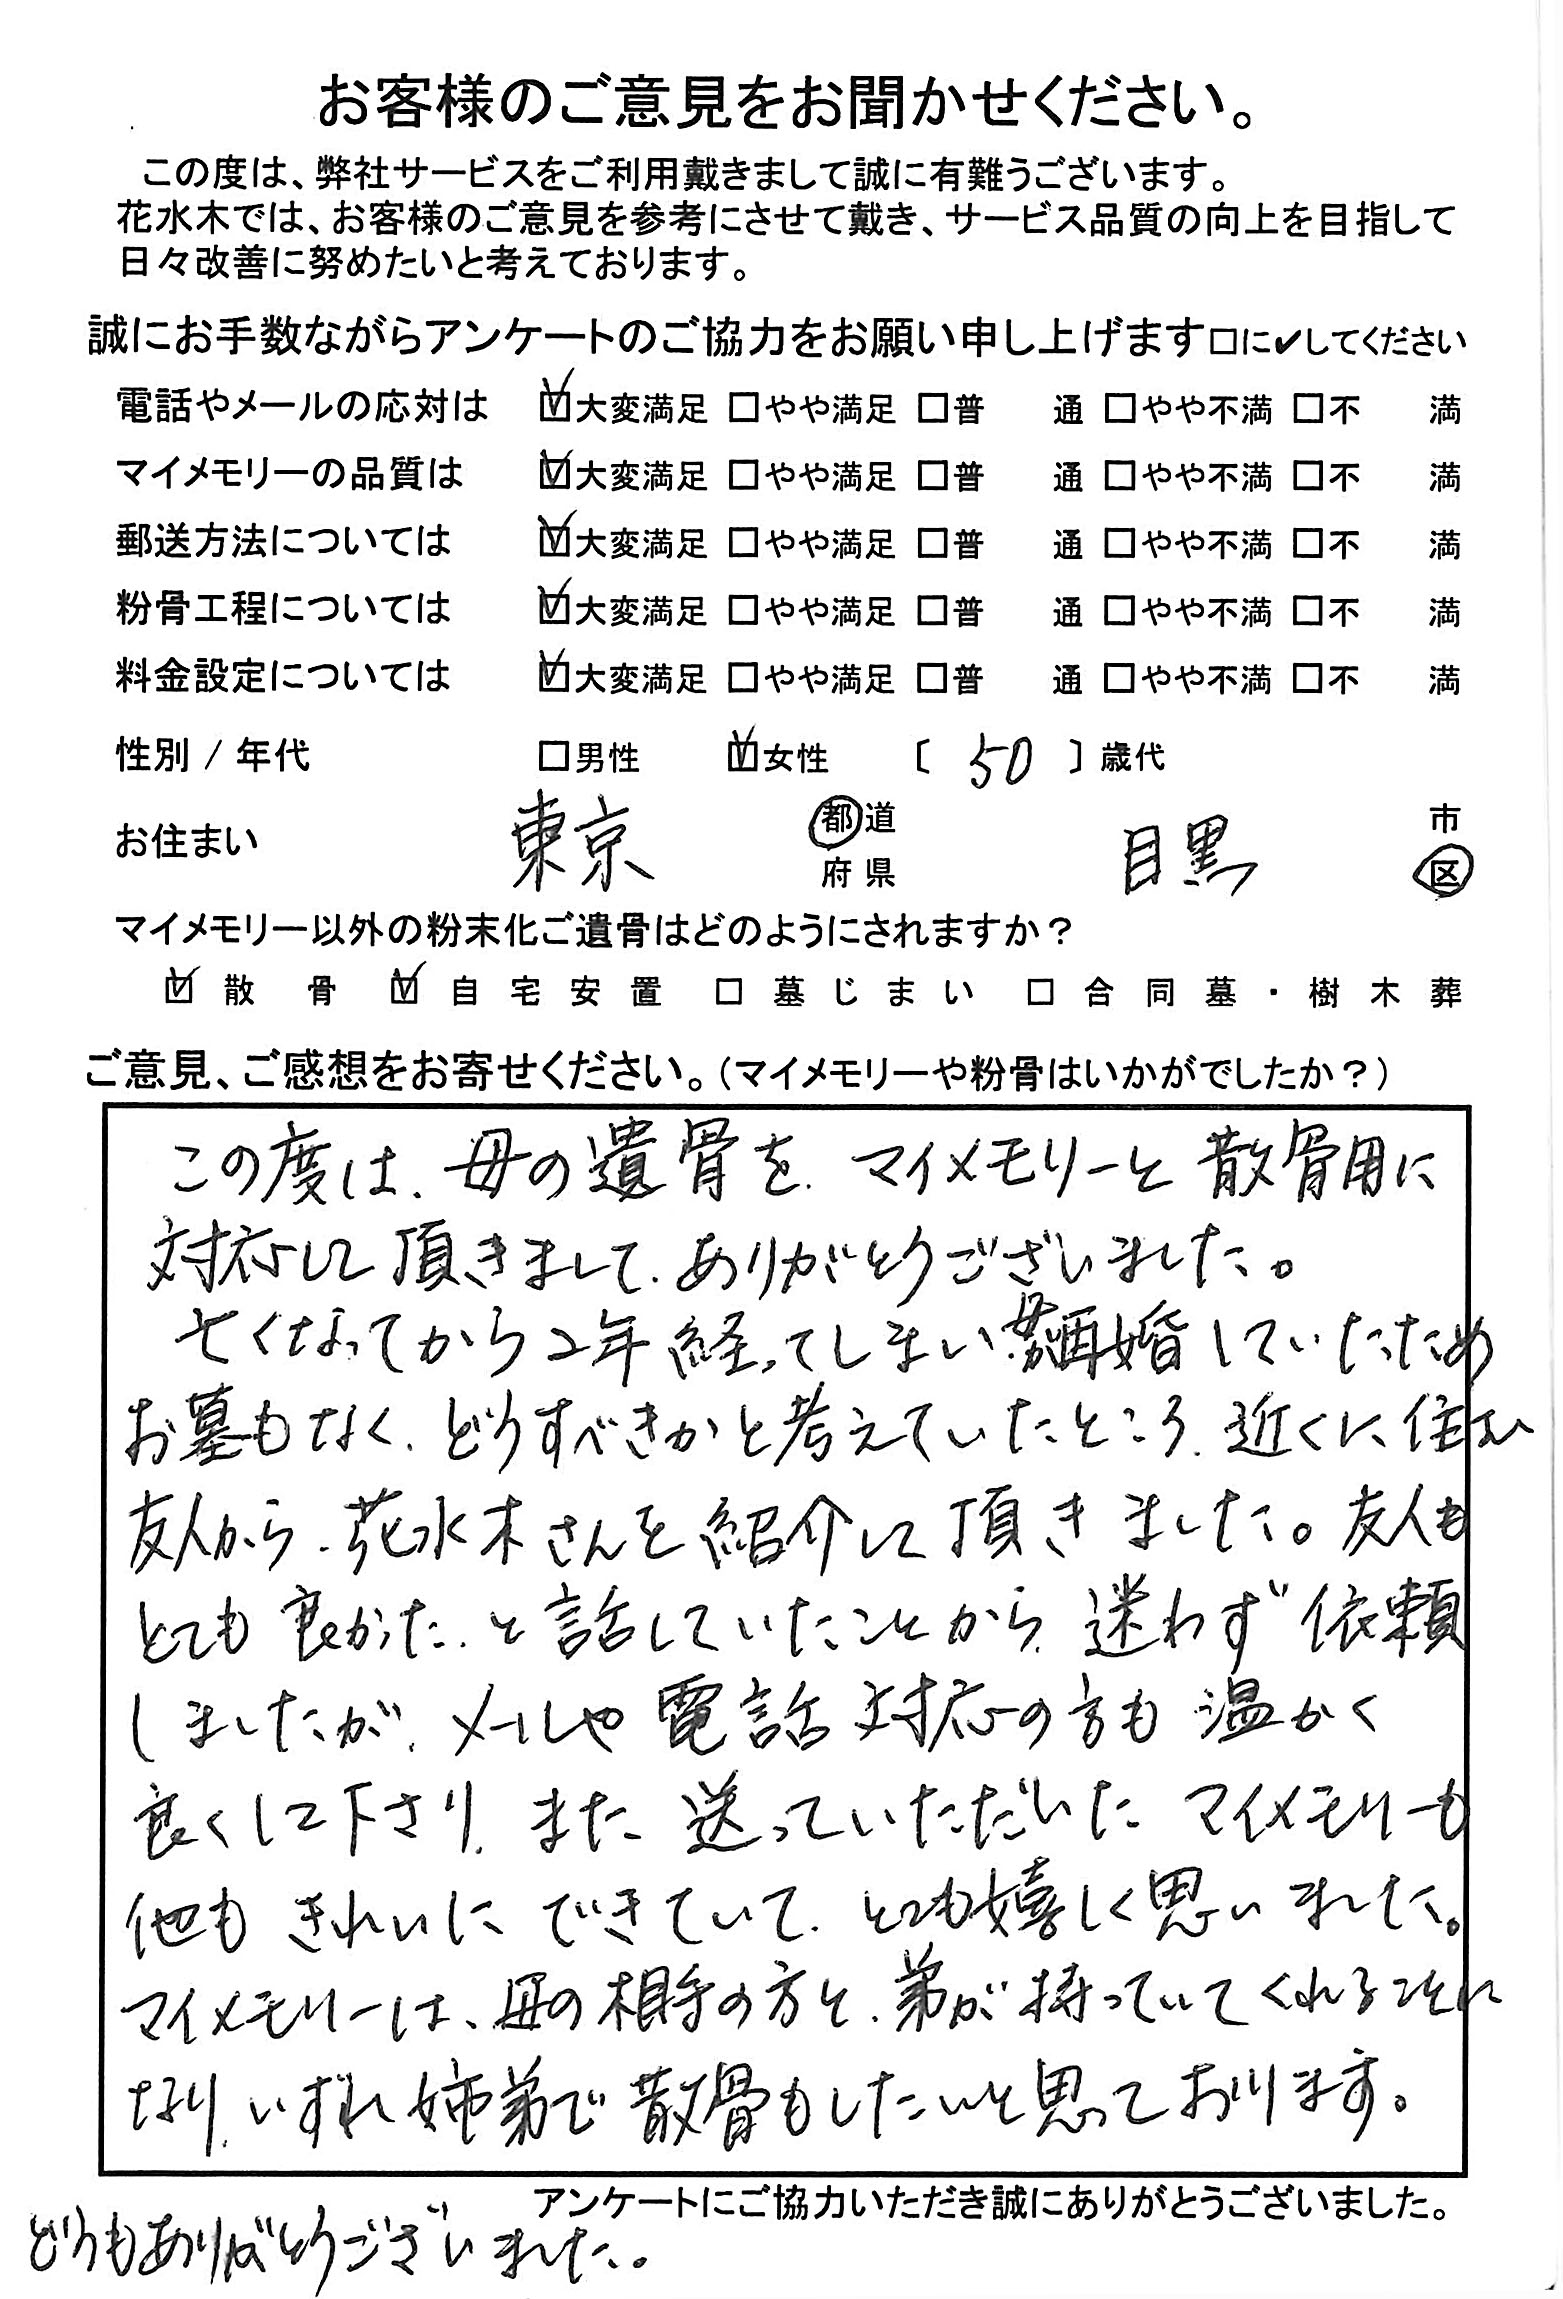 お客様のご意見をお聞かせください。
この度は、弊社サービスをご利用戴きまして誠に有難うございます。
花水木では、お客様のご意見を参考にさせて戴き、サービス品質の向上を目指して
日々改善に努めたいと考えております。
誠にお手数ながらアンケートのご協力をお願い申し上げます□に✔してください
電話やメールの応対は ☑大変満足 □やや満足 □普 通 □やや不満 □不 満
マイメモリーの品質は ☑大変満足 □やや満足 □普 通 □やや不満 □不 満
郵送方法については ☑大変満足 □やや満足 □普 通 □やや不満 □不 満
粉骨工程については ☑大変満足 □やや満足 □普 通 □やや不満 □不 満
料金設定については ☑大変満足 □やや満足 □普 通 □やや不満 □不 満
性別 / 年代 □男性 ☑女性 〔 50 〕歳代
お住まい 東京 都道府県 目黒 市区
マイメモリー以外の粉末化ご遺骨はどのようにされますか？
☑ 散骨 ☑ 自宅安置 □ 墓じまい □ 合同墓・樹木葬
ご意見、ご感想をお寄せください。（マイメモリーや粉骨はいかがでしたか？）
この度は、母の遺骨を、マイメモリーと散骨用に
対応して頂きまして、ありがとうございました。
亡くなってから2年経ってしまい 母が再婚していたため
お墓もなく、どうすべきかと考えていたところ、近くに住む
友人から、花水木さんを紹介して頂きました。友人も
とても良かった、と話していたことから、迷わず依頼
しましたが、メールや電話対応の方も温かく
良くして下さり、また送っていただいたマイメモリーも
他もきれいにできていて、とても嬉しく思いました。
マイメモリーは、母の相手の方と、弟が持っていてくれることに
なり、いずれ姉弟で散骨もしたいと思っております。
アンケートにご協力いただき誠にありがとうございました。
どうもありがとうございました。